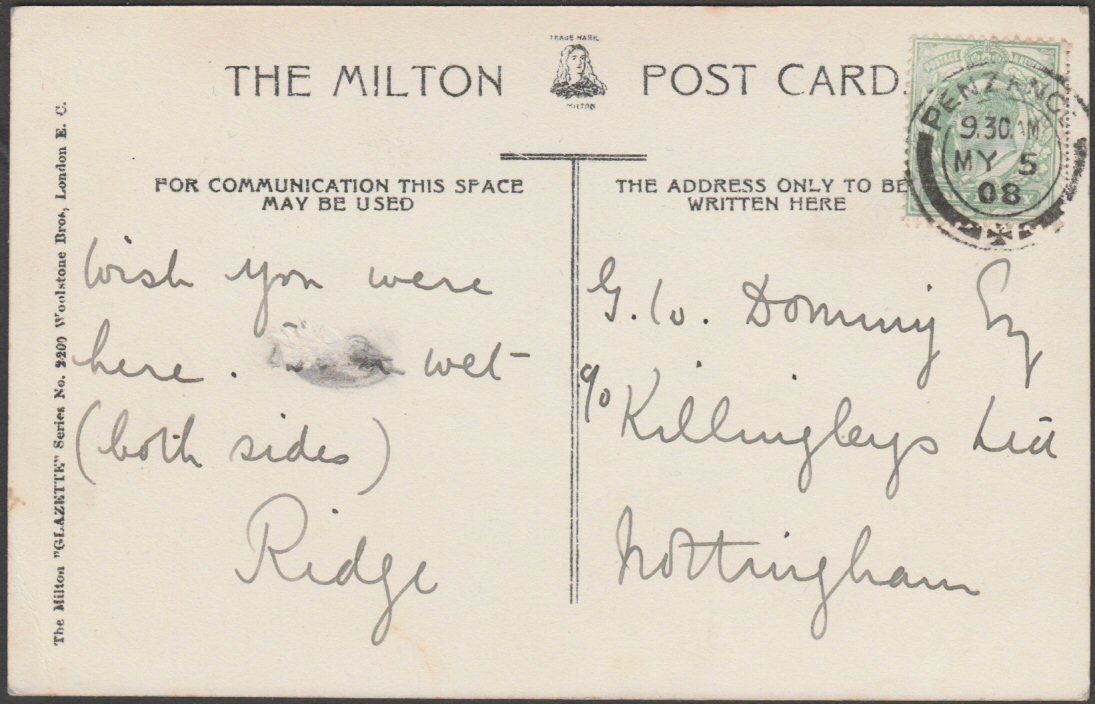 TRADE MARK
MILTON
THE MILTON POST CARD
FOR COMMUNICATION THIS SPACE
MAY BE USED
THE ADDRESS ONLY TO BE
WRITTEN HERE
PENZANCE
9.30 AM
MY 5
08
POSTAGE
The Milton "GLAZETTE" Series No. 2200 Woolstone Bros, London E. C.
Wish you were
here. wet
(both sides)
Ridge
G. W. Dommy Esq
c/o Killingleys Ltd
Nottingham